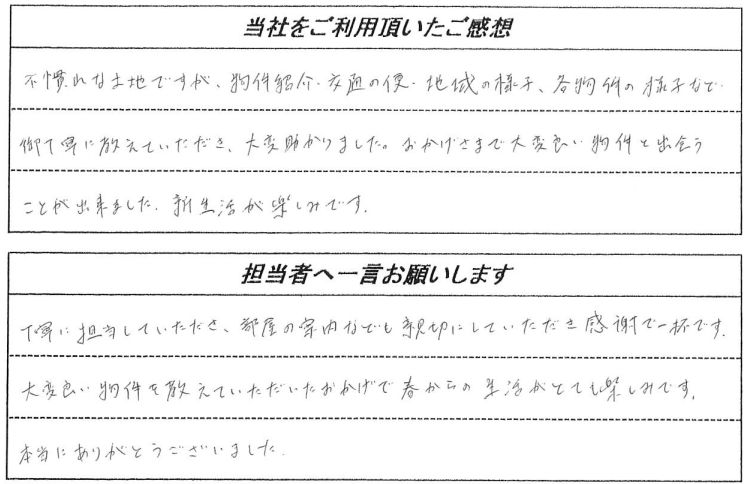 当社をご利用頂いたご感想
不慣れな土地ですが、物件紹介・交通の便・地域の様子、各物件の様子など
御丁寧に教えていただき、大変助かりました。おかげさまで大変良い物件と出会う
ことが出来ました。新生活が楽しみです。
担当者へ一言お願いします
丁寧に担当していただき、部屋の案内なども親切にしていただき感謝で一杯です。
大変良い物件を教えていただいたおかげで春からの生活がとても楽しみです。
本当にありがとうございました。